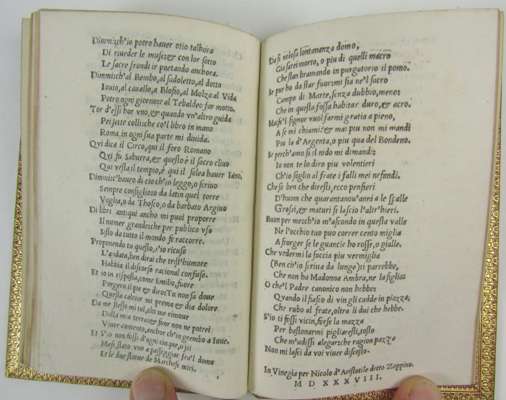 Dimmich'io potrò hauer otio talhora
Di riueder le muse; e con lor sotto
Le sacre frondi ir poetando anchora.
Dimmich'al Bembo, al sadoletto, al dotto
Iouio, al cauallo, a Blosio, al Molza, al Vida
Potrò ogni giorno, al Tebaldeo far motto.
Tor d'essi hor vno, & quando vn'altro guida
Pei sette colli; che co'l libro in mano
Roma, in ogni sua parte mi diuida.
Qui dica il Circo, qui il foro Romano
Qui fu Suburra, & questo è il sacro cliuo
Qui vesta il tempio, e qui il solea hauer Iano.
Dimmic'haurò di ciò ch'io leggo, o scriuo
Sempre consiglio; o da latin quel torre
Voglia, o da Thosco, o da barbato Argiuo
Di libri antiqui ancho mi puoi proporre
Il numer grande; che per publico vso
Sisto da tutto il mondo fe raccorre.
Proponendo tu questo, s'io ricuso
L'andata, ben dirai che trist'humore
Habbia il discorso rational confuso.
Et io in risposta, come Emilio, fuore
Porgerò il piè; & dirò Tu non sa doue
Questa calcee mi prema & dia dolore
Da me stesso mi tol, chi mi rimoue
Dalla mia terra: & fuor non ne potrei
Viuer contento, anchor che in grembo a Ioue.
Et s'io non fossi d'ogni cinque, o sei
Mesi stato vno a passeggiar fra'l domo
Et le due statue de Marchesi miei.
Da si noiosa lontananza domo,
Già sarei morto, o piu di quelli macro
Che stan bramando in purgatorio il pomo.
Se pur ho da star fuor; mi fia ne'l sacro
Campo di Marte, senza dubbio, menot
Che in questa fossa habitar duro, & acro.
Ma se'l signor vuol farmi gratia a pieno,
A se mi chiami: & mai piu non mi mandi
Piu la d'Argenta, o piu qua del Bondeno.
Se perch'amo si il nido mi dimandi:
Io non te lo dirò piu volentieri
Ch'io soglia al frate i falli mei nefandi.
Che so ben che diresti, ecco pensieri
D'huom che quarantanou'anni a le spalle
Grossi, & maturi se lasciò l'altr'hieri.
Buon per me ch'io m'ascondo in questa valle
Ne l'occhio tuo puo correr cento miglia
A scorger se le guancie ho rosse, o gialle.
Che vedermi la faccia piu vermiglia
(Ben ch'io scriua da lungo) ti parrebbe,
Che non ha Madonna Ambra, ne la figlia
O che'l Padre canonico non hebbe
Quando il fiasco di vin gli cadde in piazza,
Che rubò al frate, oltra li dui che bebbe.
S'io ti fossi vicin, forse la mazza
Per bastonarmi pigliaresti, tosto
Che m'udissi allegar che ragion pazza
Non mi lassi da voi viuer discosto.
In Vinegia per Nicolo d'Aristotile detto Zoppino.
M D XXXVIII.